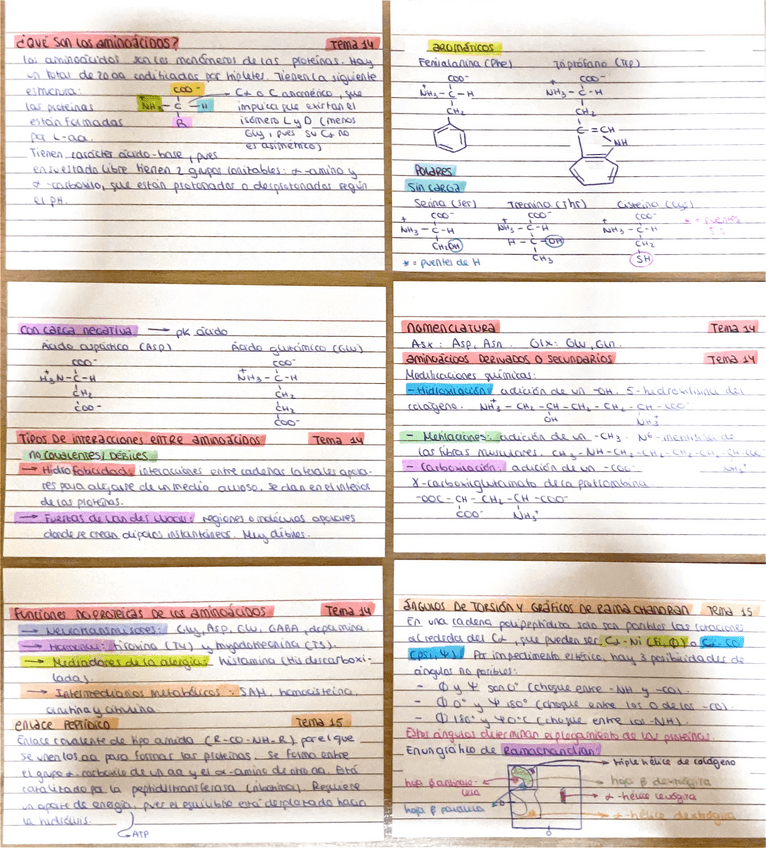 ¿Qué son los aminoácidos? Tema 14
Los aminoácidos son los monómeros de las proteínas. Hay
un total de 20 aa codificados por tripletes. Tienen la siguiente
estructura:
COO⁻
NH₃ - C - H
R
Cα o C anomérico, que
implica que existan el
isómero L y D (menos
Gly, pues su Cα no
es asimétrico)
las proteínas
están formadas
por L-aa.
Tienen carácter ácido-base, pues
en su estado libre tienen 2 grupos ionizables: α-amino y
α-carboxilo, que están protonados o desprotonados según
el pH.
AROMÁTICOS
Fenilalanina (Phe) Triptófano (Trp)
COO⁻ COO⁻
⁺NH₃ - C - H ⁺NH₃ - C - H
CH₂ CH₂
C = CH
NH
POLARES
Sin carga
Serina (Ser) Treonina (Thr) Cisteína (Cys)
COO⁻ COO⁻ COO⁻
⁺NH₃ - C - H ⁺NH₃ - C - H ⁺NH₃ - C - H
CH₂OH H - C - OH CH₂
CH₃ SH
* = puentes
* = puentes de H
Con carga negativa → pK ácido
Ácido aspártico (Asp) Ácido glutámico (Glu)
COO⁻ COO⁻
H₃⁺N - C - H ⁺NH₃ - C - H
CH₂ CH₂
COO⁻ CH₂
COO⁻
Tipos de interacciones entre aminoácidos Tema 14
no covalentes / débiles
→ Hidrofobicidad: interacciones entre cadenas laterales apola-
res para alejarse de un medio acuoso. Se dan en el interior
de las proteínas.
→ Fuerzas de Van der Waals: regiones o moléculas apolares
donde se crean dipolos instantáneos. Muy débiles.
Nomenclatura Tema 14
Asx: Asp, Asn. Glx: Glu, Gln.
Aminoácidos derivados o secundarios Tema 14
Modificaciones químicas:
- Hidroxilación: adición de un -OH. 5-hidroxilisina del
colágeno. NH₃⁺ - CH₂ - CH - CH₂ - CH₂ - CH - COO⁻
OH NH₃⁺
- Metilaciones: adición de un -CH₃.
las fibras musculares. CH₃ - NH - CH₂ - CH₂ - CH₂ - CH₂ - CH - COO⁻
NH₃⁺
- Carboxilación: adición de un -COO⁻
γ-carboxiglutamato de la protrombina
⁻OOC - CH - CH₂ - CH - COO⁻
COO⁻ NH₃⁺
Funciones no proteicas de los aminoácidos Tema 14
→ Neurotransmisores: Gly, Asp, Glu, GABA, dopamina
→ Hormonas: tiroxina (T4) y triyodotironina (T3).
→ Mediadores de la alergia: histamina (His descarboxi-
lada).
→ Intermediarios metabólicos: SAM, homocisteína,
ornitina y citrulina.
Enlace peptídico Tema 15
Enlace covalente de tipo amida (R-CO-NH-R), por el que
se unen los aa para formar las proteínas. Se forma entre
el grupo α-carboxilo de un aa y el α-amino de otro aa. Está
catalizado por la peptidiltransferasa (ribozima). Requiere
un aporte de energía, pues el equilibrio está desplazado hacia
la hidrólisis.
ATP
Ángulos de torsión y gráficos de Ramachandran Tema 15
En una cadena polipeptídica solo son posibles las rotaciones
alrededor del Cα, que pueden ser Cα-Ni (fi, Φ) o Cα-CO
(psi, Ψ). Por impedimento estérico, hay 3 posibilidades de
ángulos no posibles:
- Φ y Ψ son 0° (choque entre -NH y -CO).
- Φ 0° y Ψ 180° (choque entre los O de los -CO).
- Φ 180° y Ψ 0° (choque entre los -NH).
Estos ángulos determinan el plegamiento de las proteínas.
En un gráfico de Ramachandran:
triple hélice de colágeno
hoja β antipara-
lela
hoja β dextrógira
α-hélice levógira
hoja β paralela
α-hélice dextrógira
0
0